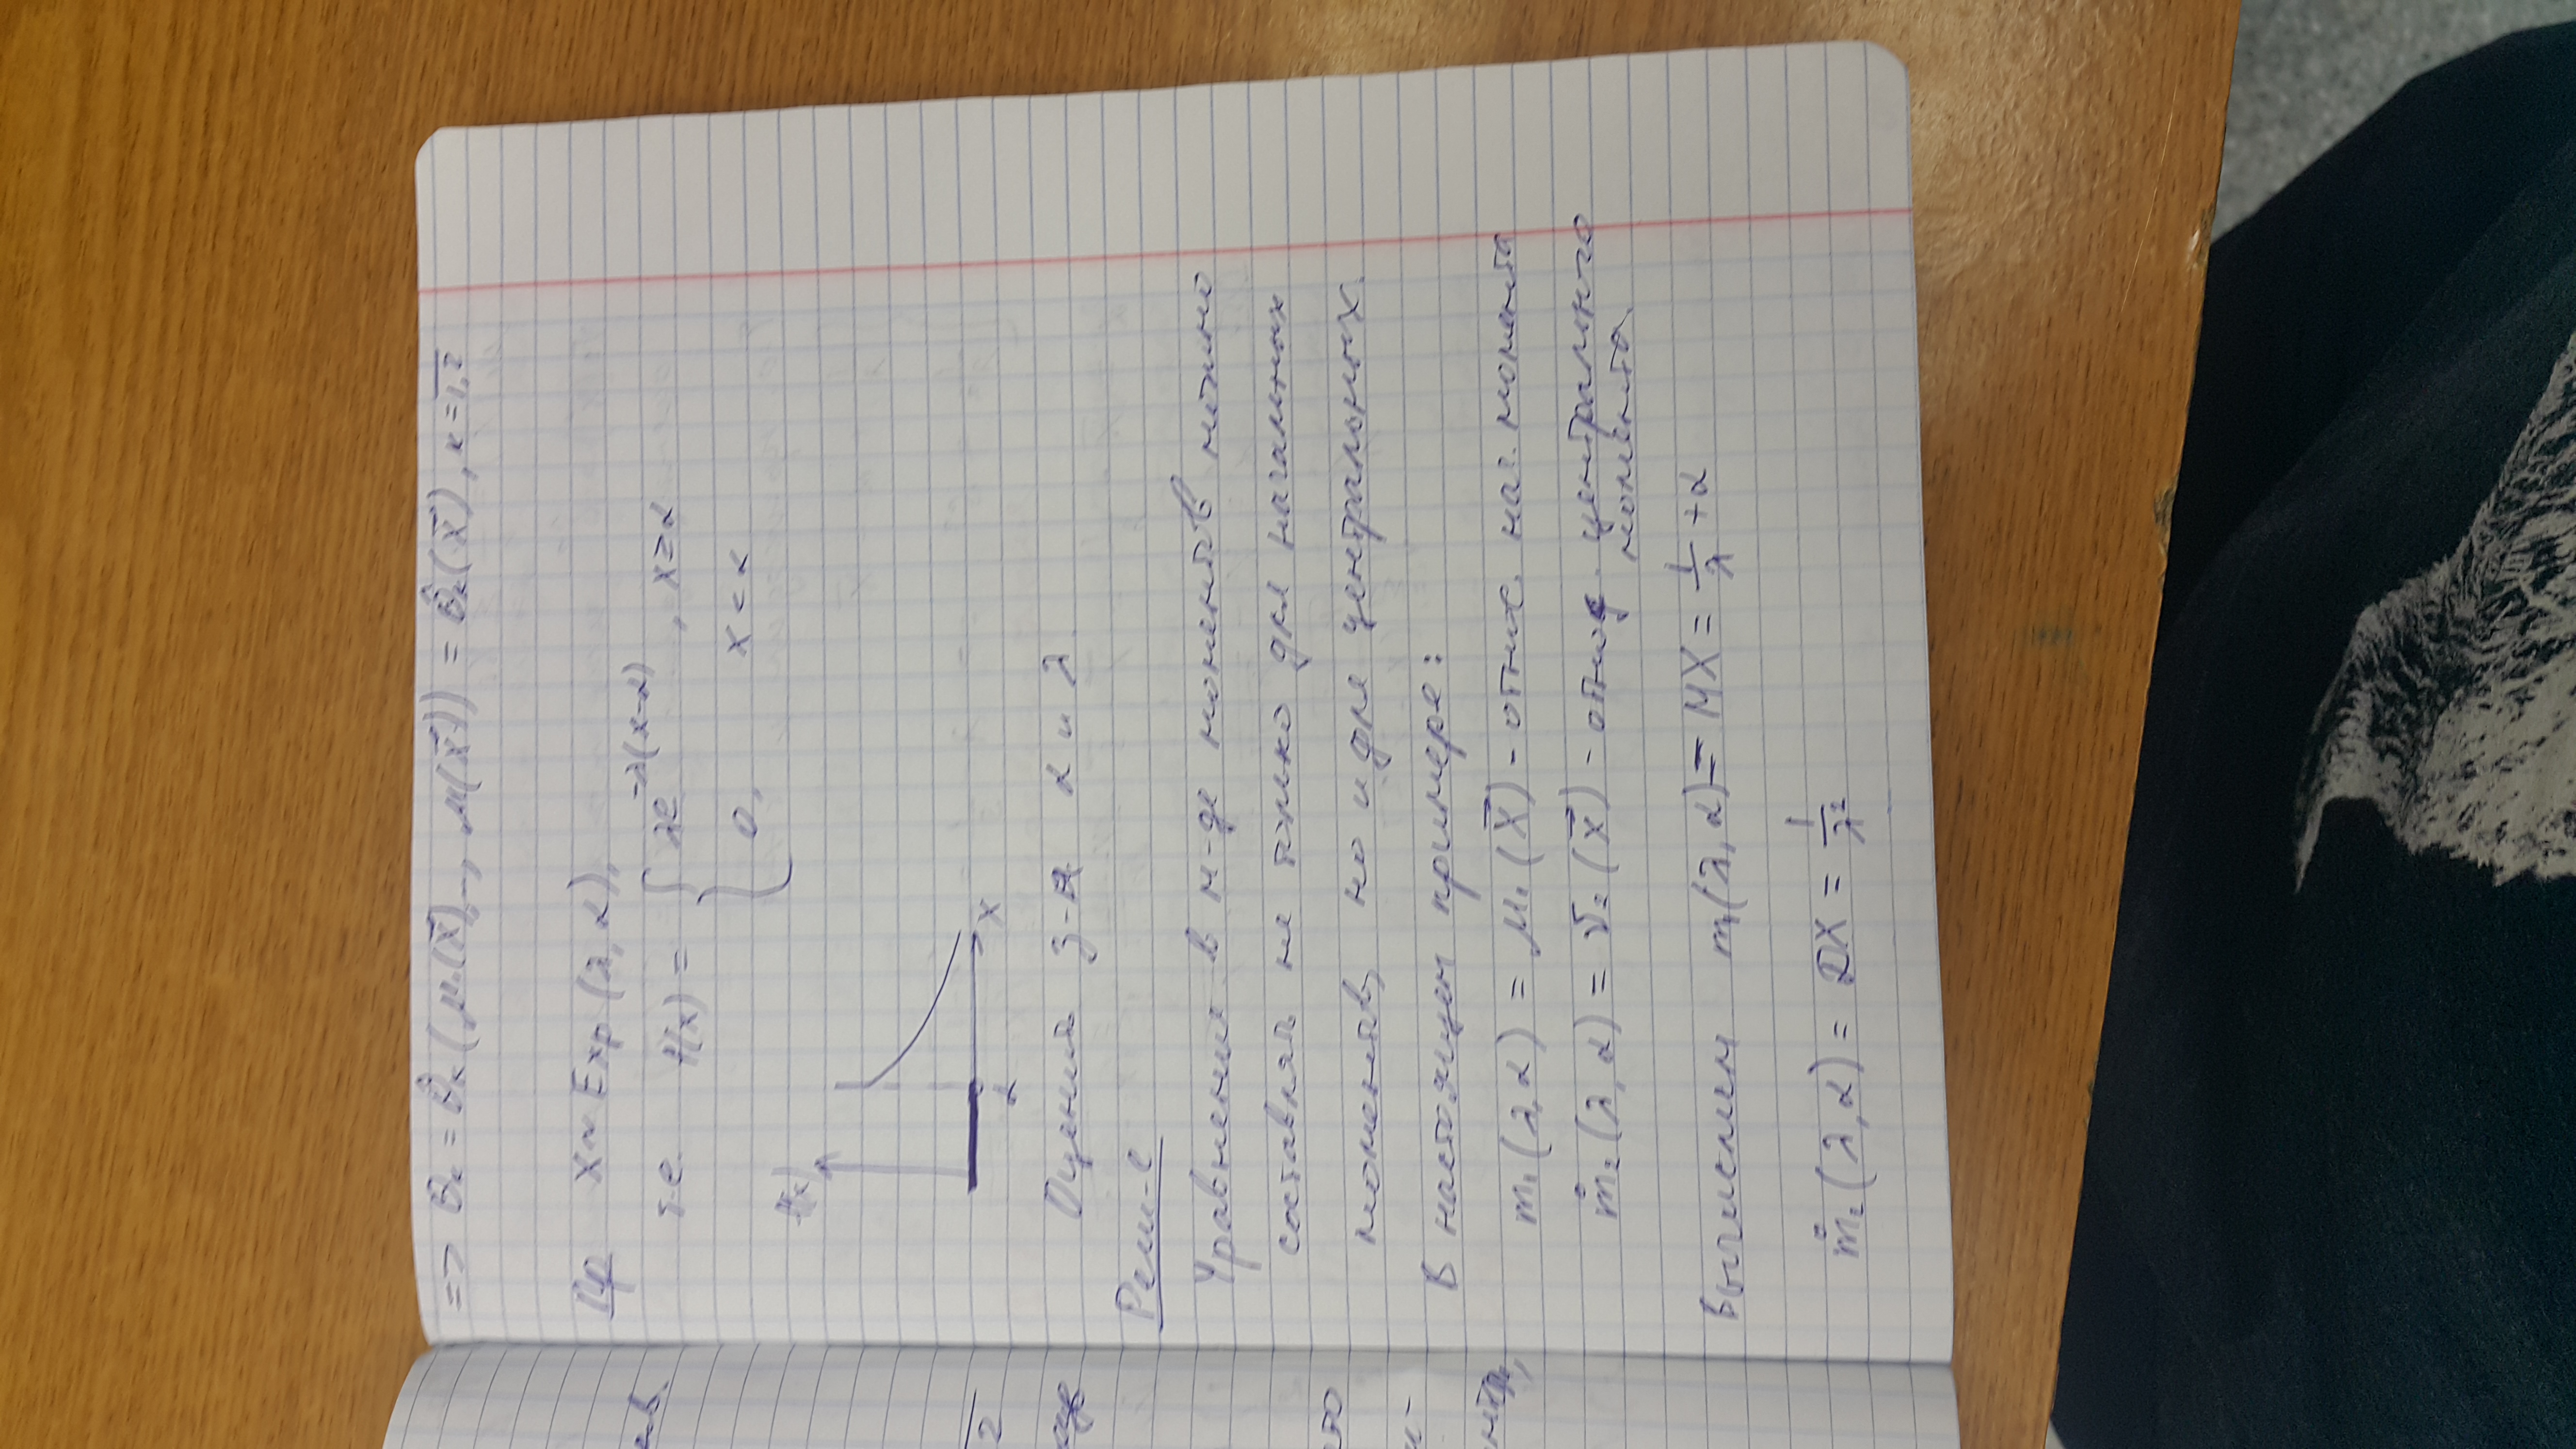 => θₖ = θ̂ₖ (μ₁(X⃗), ..., μ(X⃗)) = θ̂ₖ(X⃗), k = 1,r
Пр X ~ Exp (λ, α),
т.е. f(x) = { λe^{-λ(x-α)}, x ≥ α
0, x < α
f(x)
x
α
Оценить з-я α и λ.
Реш-е
Уравнения в м-де моментов можно
составлять не только для начальных
моментов, но и для центральных.
В настоящем примере:
m₁(λ, α) = μ₁(X⃗) - относ. нач. момента
m̊₂(λ, α) = ν₂(X⃗) - относ. центрального
момента.
Вычислим m₁(λ, α) = MX = 1/λ + α
m̊₂(λ, α) = DX = 1/λ²
ив.
2
это